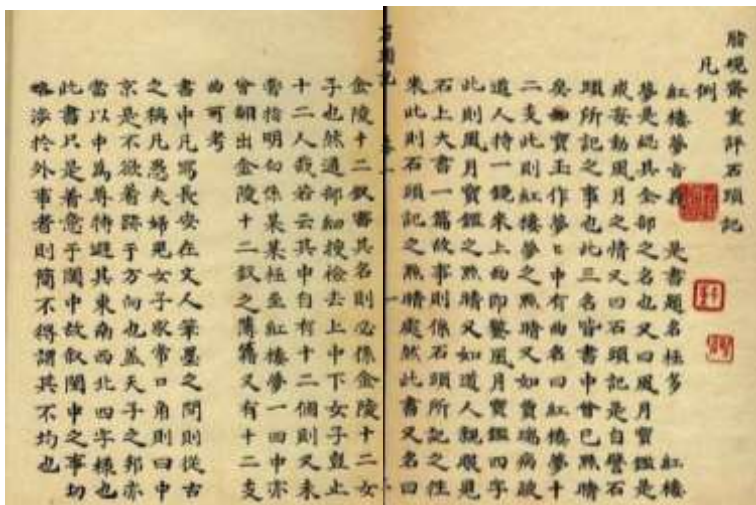 脂硯齋重評石頭記
凡例
紅樓夢旨義 是書題名極多 紅樓
夢是總其全部之名也又曰風月寶鑑是
戒妄動風月之情又曰石頭記是自譬石
頭所記之事也此三名皆書中曾已點睛
矣如寶玉作夢夢中有曲名曰紅樓夢十
二支此則紅樓夢之點睛又如賈瑞病跛
道人持一鏡來上面即鏨風月寶鑑四字
此則風月寶鑑之點睛又如道人親眼見
石上大書一篇故事則係石頭所記之往
來此則石頭記之點睛處然此書又名曰
石頭記 卷一 一
金陵十二釵審其名則必係金陵十二女
子也然通部細搜檢去上中下女子豈止
十二人哉若云其中自有十二個則又未
嘗指明白係某某極至紅樓夢一回中亦
曾翻出金陵十二釵之簿籍又有十二支
曲可考
書中凡寫長安在文人筆墨之間則從古
之稱凡愚夫婦兒女子家常口角則曰中
京是不欲着跡于方向也蓋天子之邦亦
當以中為尊特避其東南西北四字樣也
此書只是着意于閨中故叙閨中之事切
略涉於外事者則簡不得謂其不均也